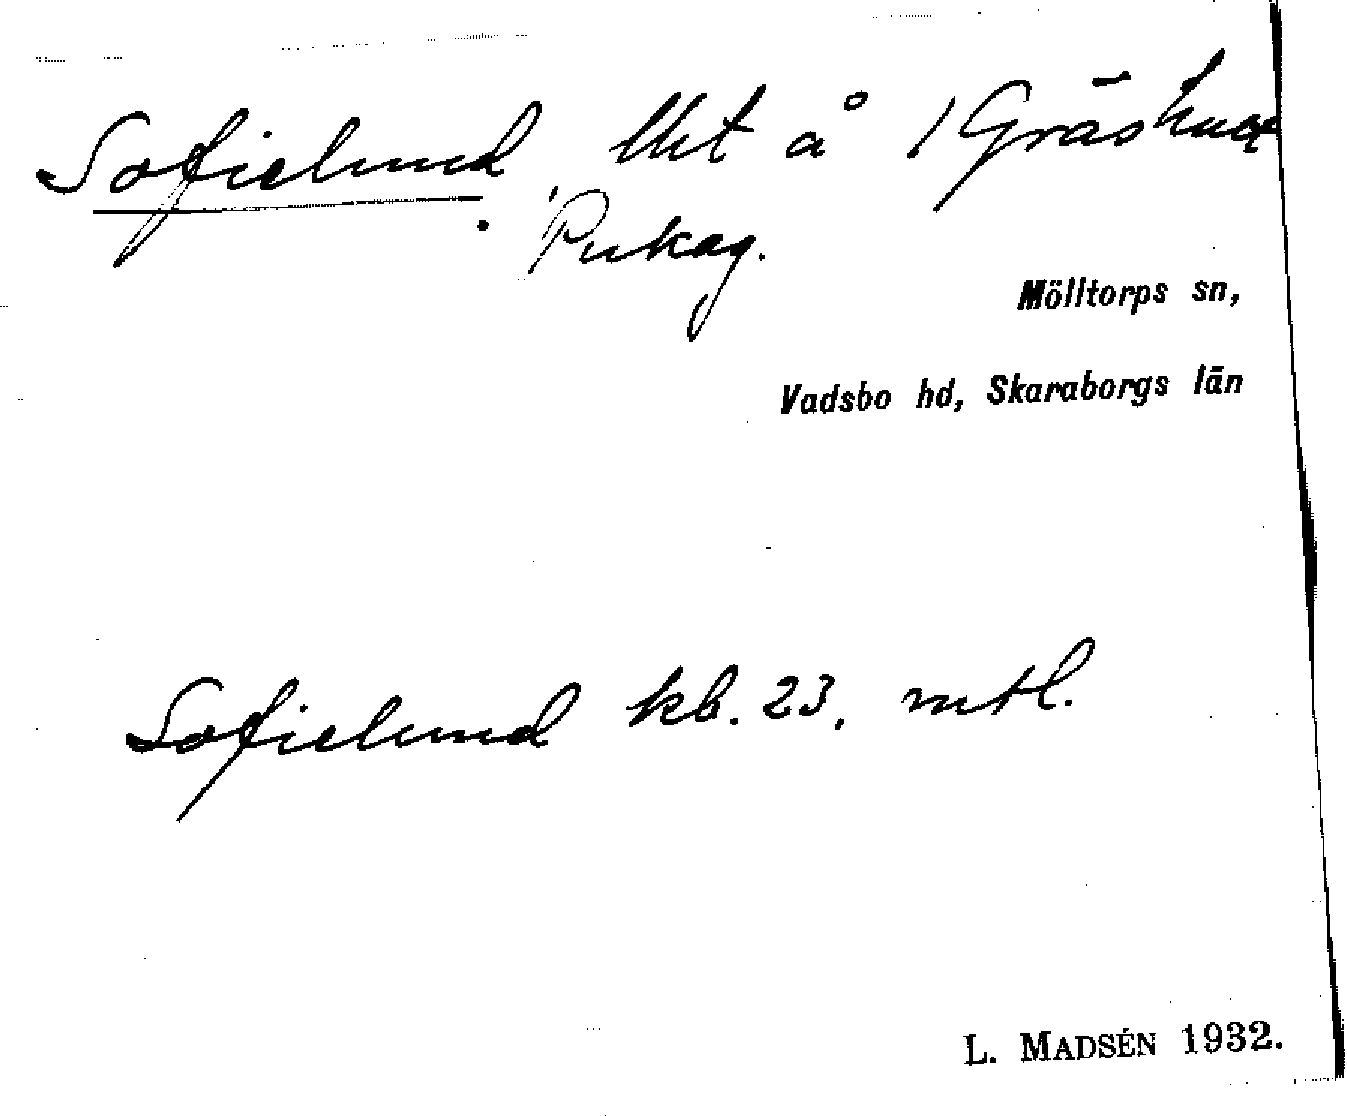 Sofielund, lht å 1 Gräshu
Pukag.
Mölltorps sn,
Vadsbo hd, Skaraborgs län
Sofielund kb. 23, mtl.
L. MADSÉN 1932.